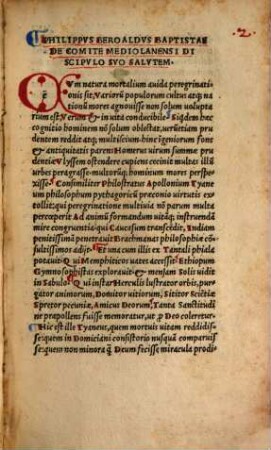 PHILIPPVS BEROALDVS BAPTISTAE
DE COMITE MEDIOLANENSI DI
SCIPVLO SVO SALVTEM.
CVm natura mortalium auida peregrinati
onis sit. Variorũ populorum cultus atq; na
tionũ mores agnouisse non solum uolupta
rium est: Verum & in uita conducibile. Siqdem hæc
cognitio hominem nõ solum oblectat, uerũetiam pru
dentem reddit. multiscium: hinc igenioriũ fons
& antiquitatis parens Homerus uirum summæ pru
dentiæ Vlyssem ostodere cupiens cecinit multas illũ
urbes peragrasse: multorũq; hominum mores perspex
isse. Consimiliter Philostratus Apollonium Tyane
um philosophum pythagoricũ præcipuis uirtutibus ex
tollit: qui peregrinatione multiuia nõ parum multa
perceperit Ad animũ formandum uitãq; instruendã
mire congruentia: qui Caucasum transcēdit, Indiam
penitissimã penetrauit Brachmanas philosophos cum
omnis adisset. Et maxime illi ex Tantali phiala
potauit Qui Memphiticos uates accesset. Ethiopum
Gymnosophistas explorauit & mensam Solis uidit
in Sabulo Qui ut instar Herculis lustrator orbis, pur
gator animorum, Domitor uitiorum, Sititor Sciētiæ
Spretor pecuniæ, Amicus Deorum, Tanta Sanctitudi
ne præpollens fuisse memoratur, ut p Deo coleretur.
Hic est ille Tyaneus, quem mortuis uitam reddidis
se: quem in Domiciani consistorio nusquã comparuis
se: quem non minora q̃ Deum fecisse miracula prodi